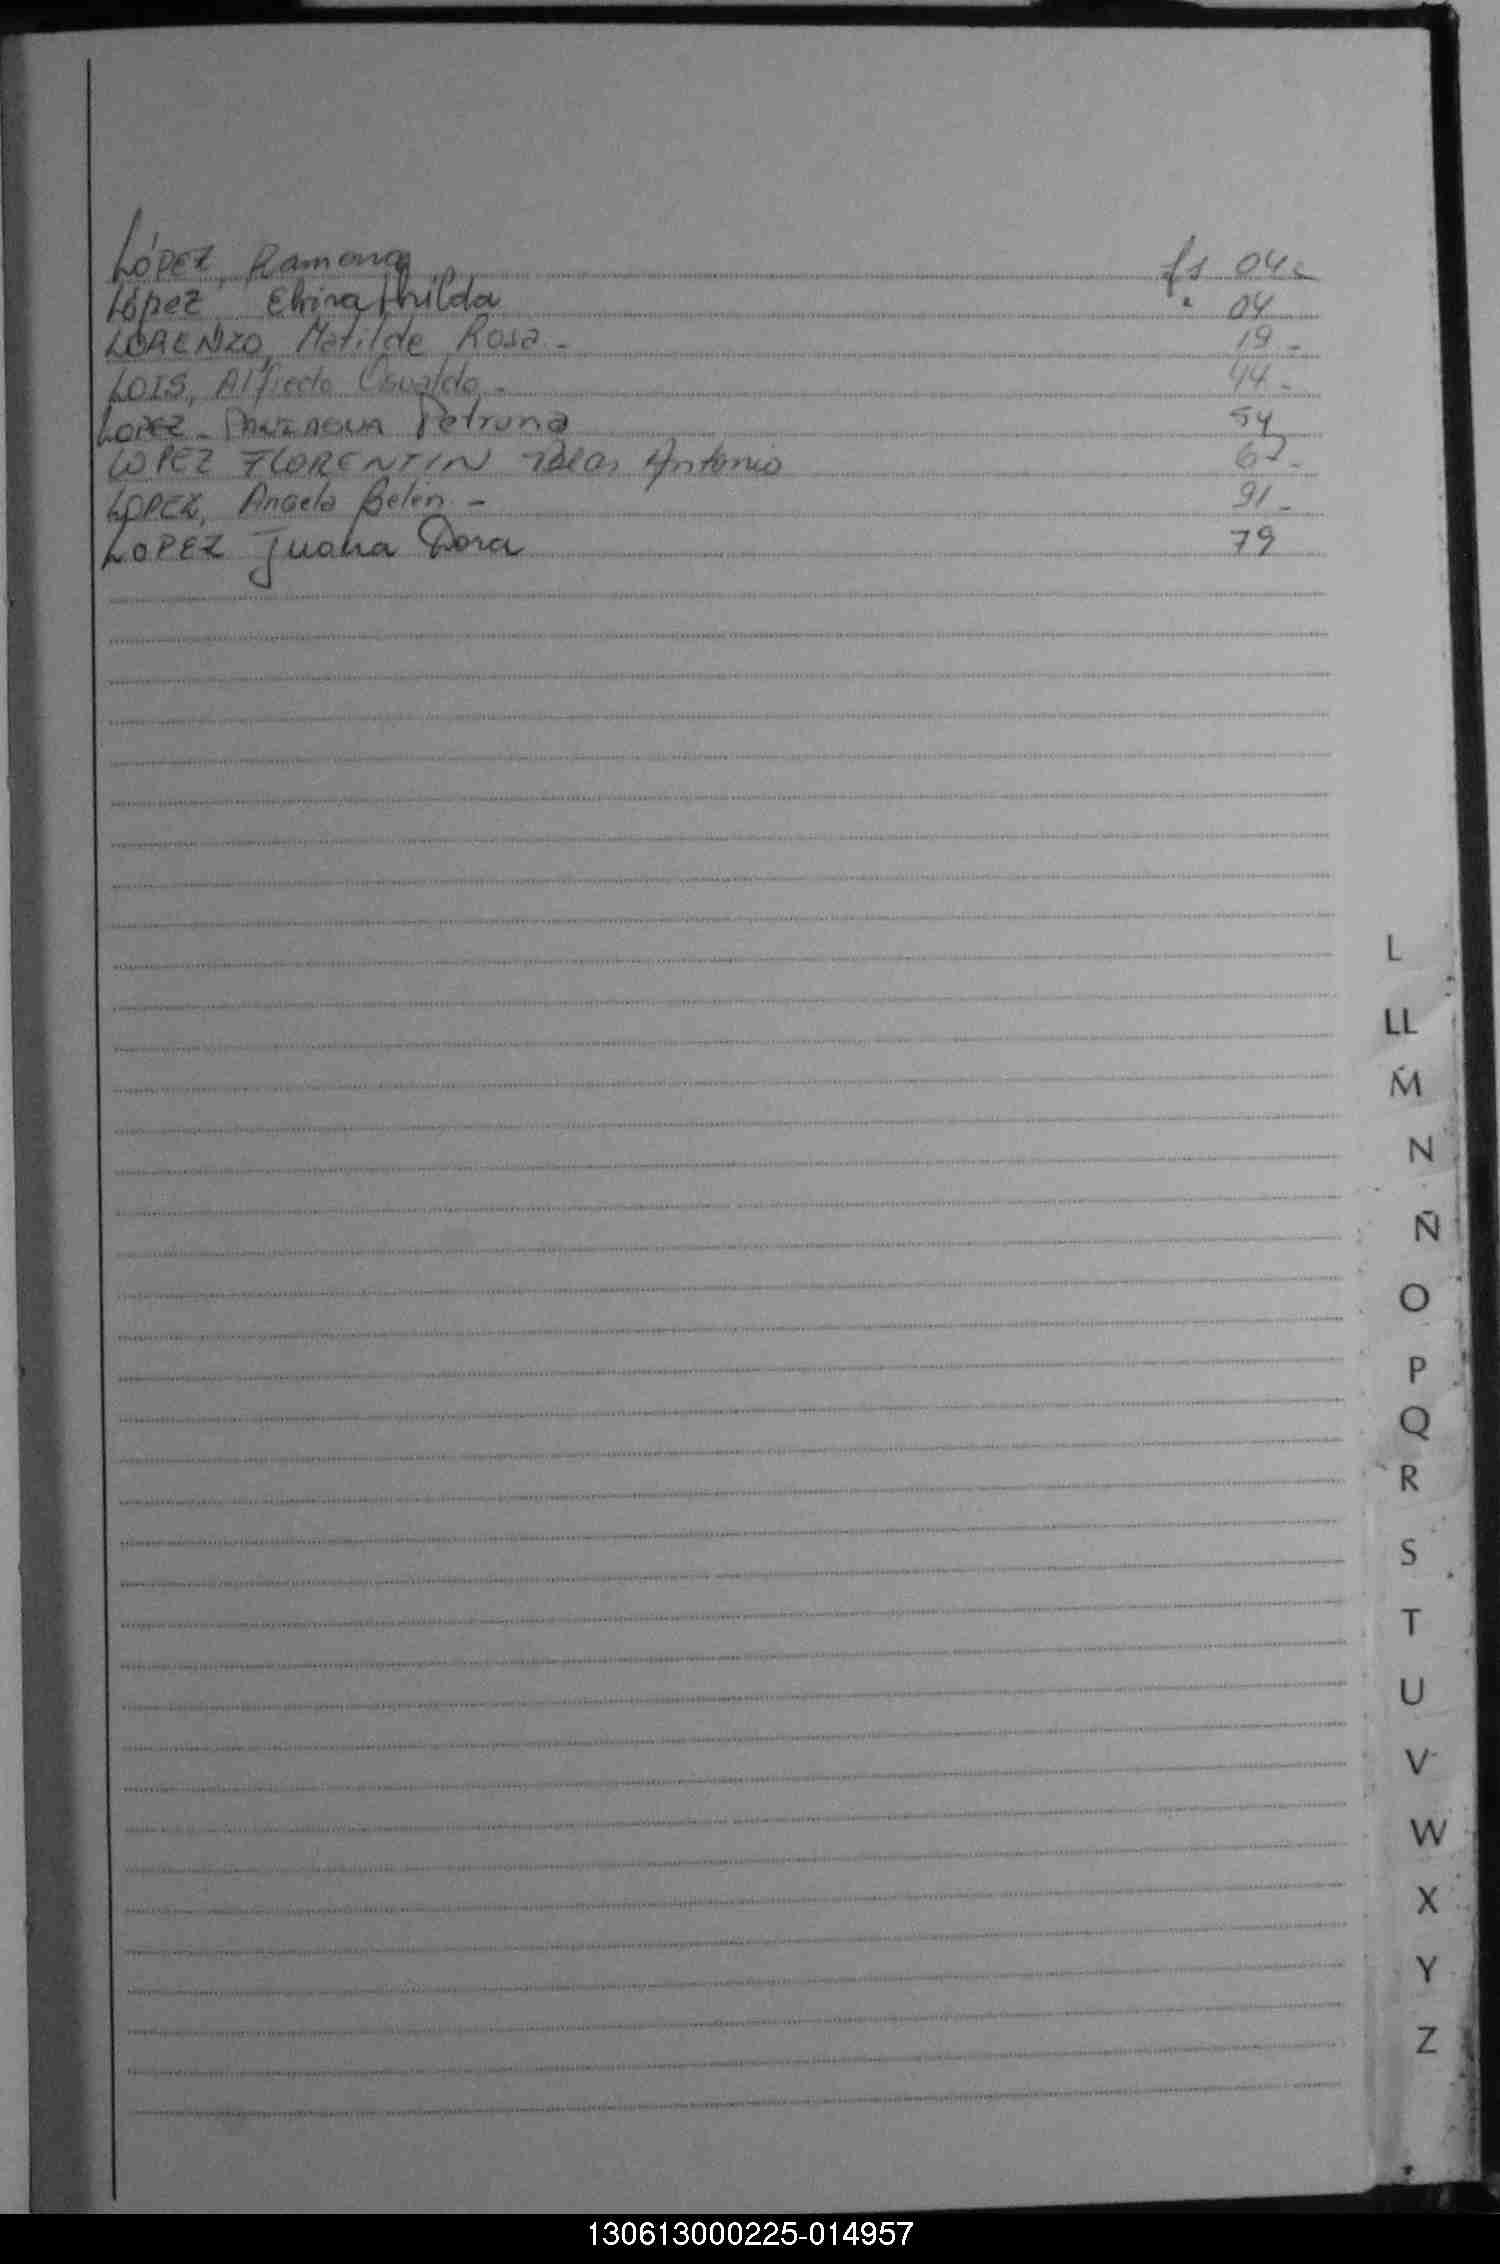 LÓPEZ, Ramona fs 04
López Elvira Hilda " 04
LORENZO, Matilde Rosa - 19 -
LOIS, Alfredo Osvaldo - 44 -
LOPEZ - Petrona 54
LOPEZ FLORENTIN Antonio 67 -
LOPEZ, Angela Belén - 91 -
LOPEZ Juana Dora 79
L
LL
M
N
Ñ
O
P
Q
R
S
T
U
V
W
X
Y
Z
130613000225-014957